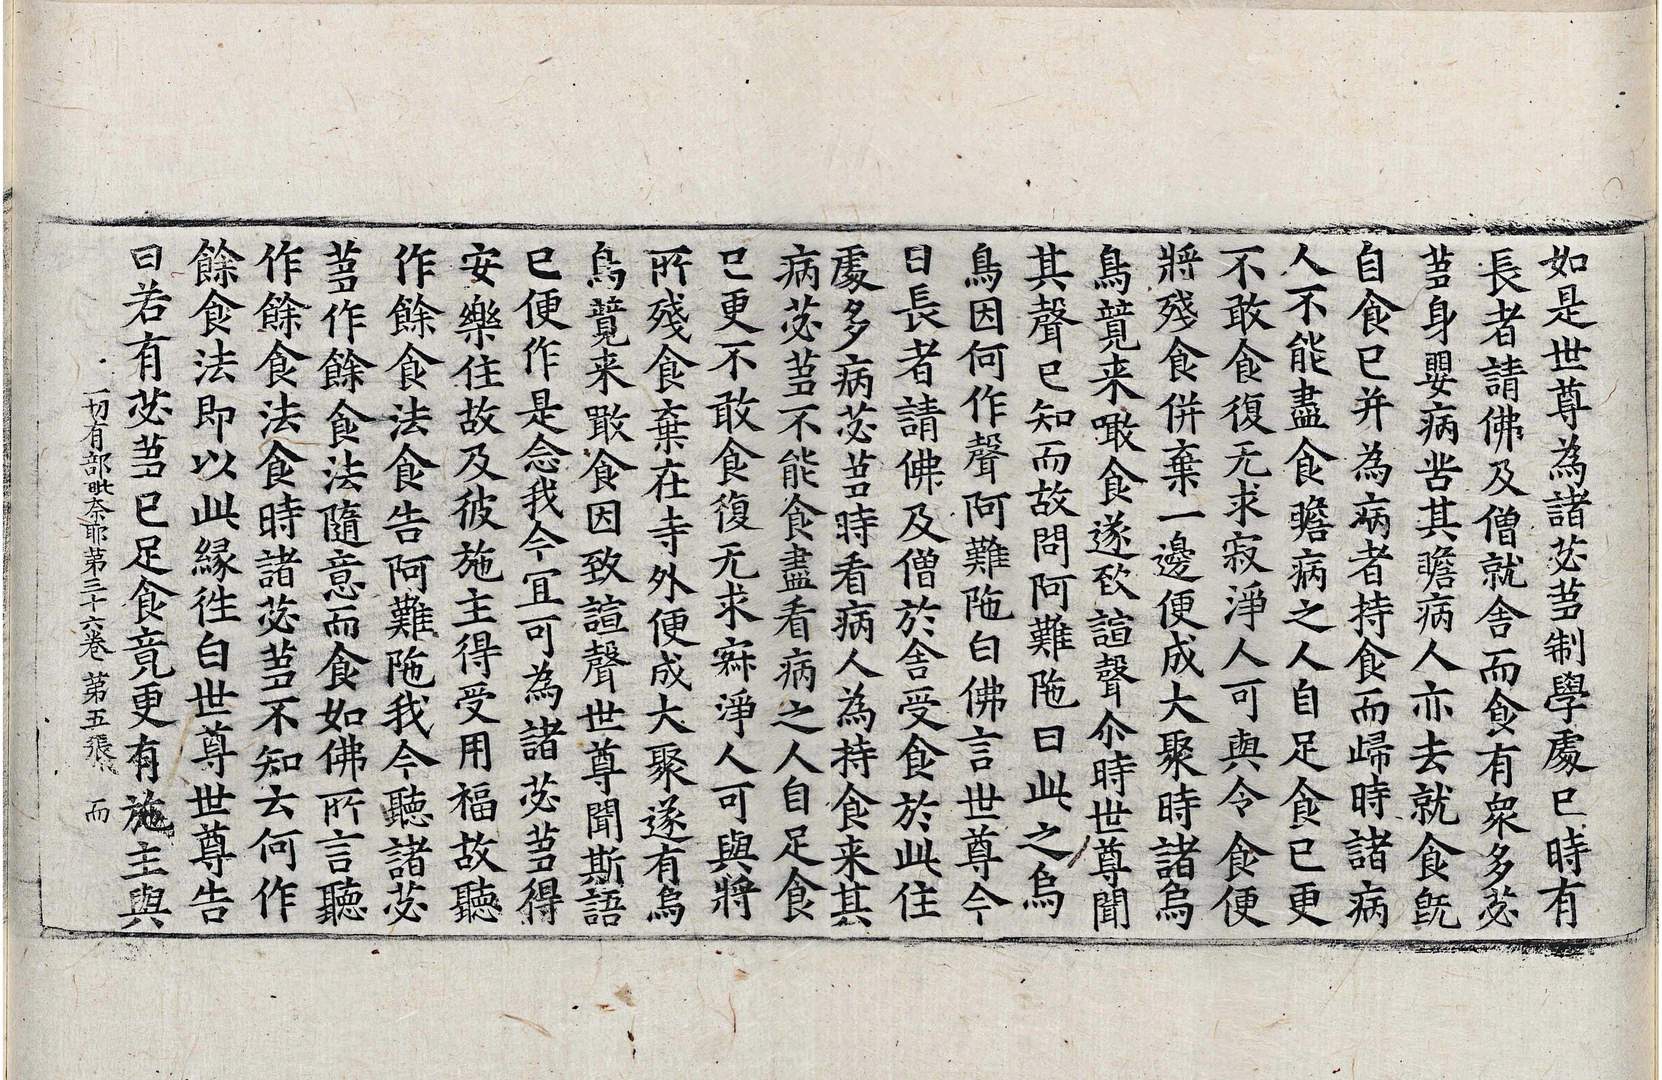 如是世尊為諸苾芻制學處已時有
長者請佛及僧就舍而食有衆多苾
芻身嬰病苦其瞻病人亦去就食旣
自食已并為病者持食而歸時諸病
人不能盡食瞻病之人自足食已更
不敢食復无求寂淨人可與令食便
將殘食併棄一邊便成大聚時諸烏
鳥競来噉食遂致諠聲尒時世尊聞
其聲已知而故問阿難陁曰此之烏
鳥因何作聲阿難陁白佛言世尊今
日長者請佛及僧於舍受食於此住
處多病苾芻時看病人為持食来其
病苾芻不能食盡看病之人自足食
已更不敢食復无求寂淨人可與將
所殘食棄在寺外便成大聚遂有烏
鳥競来噉食因致諠聲世尊聞斯語
已便作是念我今宜可為諸苾芻得
安樂住故及彼施主得受用福故聽
作餘食法食告阿難陁我今聽諸苾
芻作餘食法隨意而食如佛所言聽
作餘食法食時諸苾芻不知云何作
餘食法即以此緣徃白世尊世尊告
曰若有苾芻已足食竟更有施主與
一切有部毗奈耶第三十六卷 第五張 而